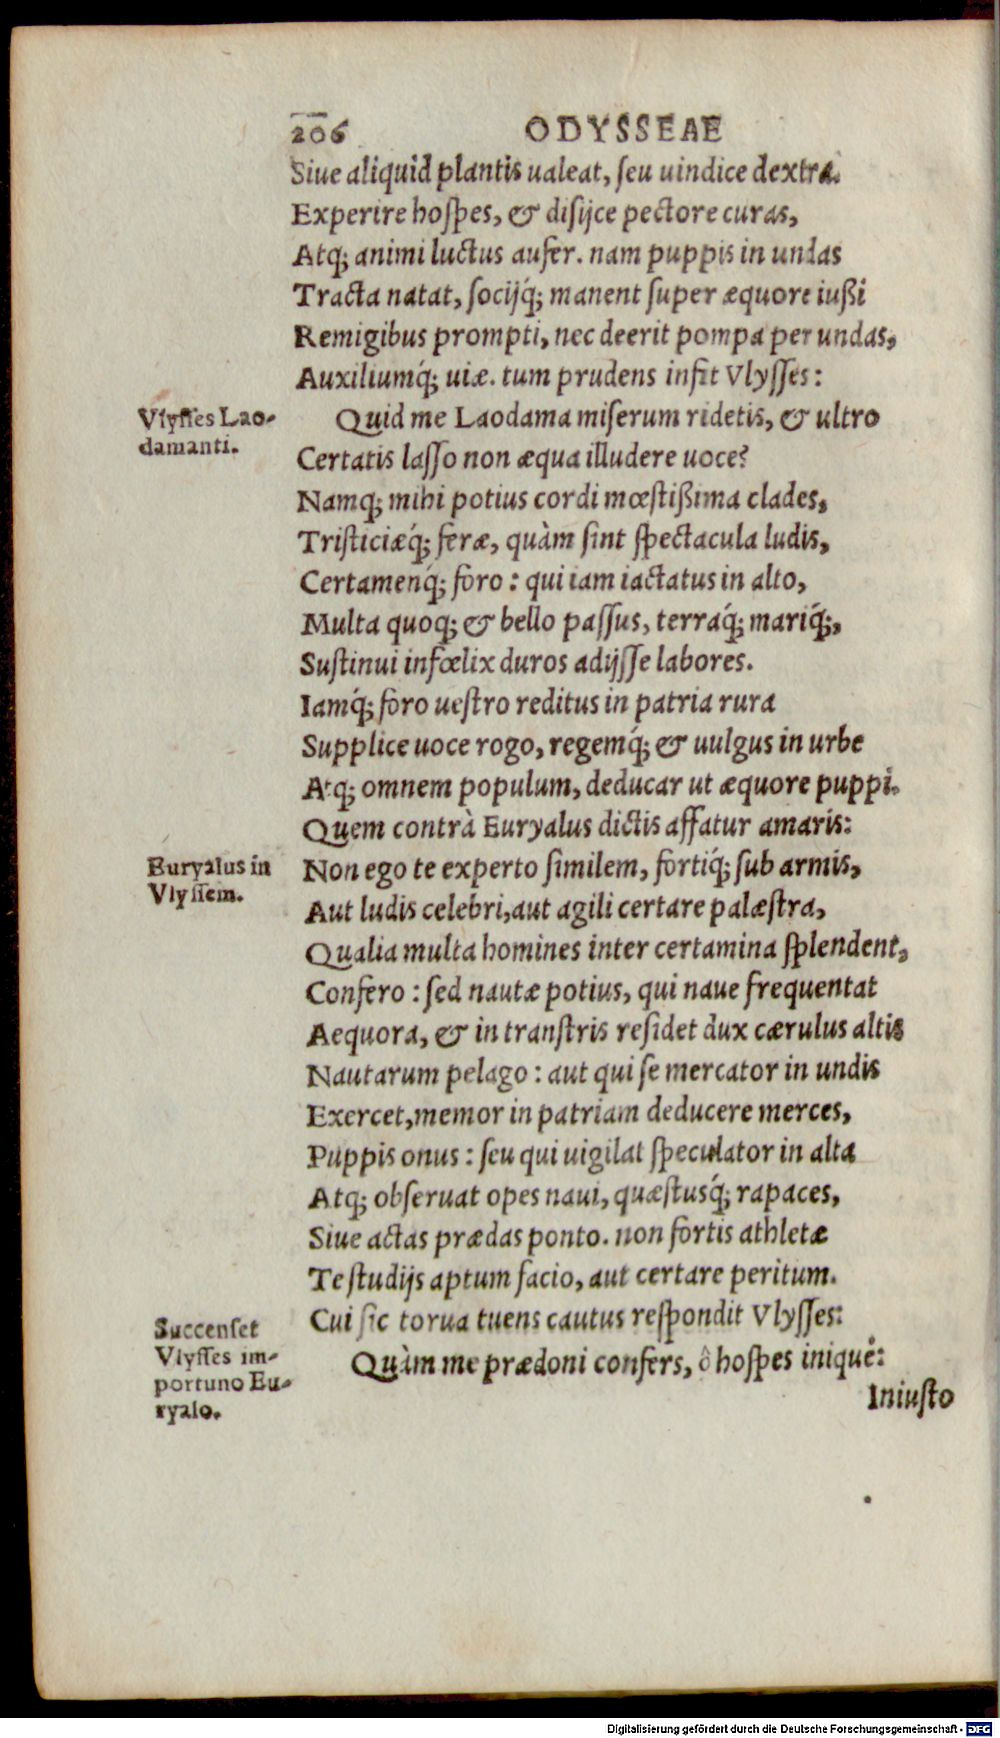 206 ODYSSEAE
Siue aliquid plantis ualeat, ſeu uindice dextra.
Experire hoſpes, & disijce pectore curas,
Atq; animi luctus aufer. nam puppis in undas
Tracta natat, ſocijq́; manent ſuper æquore iußi
Remigibus prompti, nec deerit pompa per undas,
Auxiliumq́; uiæ. tum prudens infit Vlyſſes:
Vlyſſes Lao-
damanti.
Quid me Laodama miſerum ridetis, & ultro
Certatis laſſo non æqua illudere uoce?
Namq; mihi potius cordi mœſtißima clades,
Triſticiæq́; feræ, quàm ſint ſpectacula ludis,
Certamenq́; foro: qui iam iactatus in alto,
Multa quoq; & bello paſſus, terraq́; mariq́;,
Suſtinui infœlix duros adijſſe labores.
Iamq́; foro ueſtro reditus in patria rura
Supplice uoce rogo, regemq́; & uulgus in urbe
Atq; omnem populum, deducar ut æquore puppi.
Quem contrà Euryalus dictis affatur amaris:
Euryalus in
Vlyſſem.
Non ego te experto ſimilem, fortiq́; ſub armis,
Aut ludis celebri, aut agili certare palæſtra,
Qualia multa homines inter certamina ſplendent,
Confero: ſed nautæ potius, qui naue frequentat
Aequora, & in tranſtris reſidet dux cærulus altis
Nautarum pelago: aut qui ſe mercator in undis
Exercet, memor in patriam deducere merces,
Puppis onus: ſeu qui uigilat ſpeculator in alta
Atq; obſeruat opes naui, quæſtusq́; rapaces,
Siue actas prædas ponto. non fortis athletæ
Te ſtudijs aptum facio, aut certare peritum.
Cui ſic torua tuens cautus reſpondit Vlyſſes:
Succenſet
Vlyſſes im-
portuno Eu-
ryalo.
Quàm me prædoni confers, ô hoſpes inique:
Iniuſto
Digitalisierung gefördert durch die Deutsche Forschungsgemeinschaft - DFG